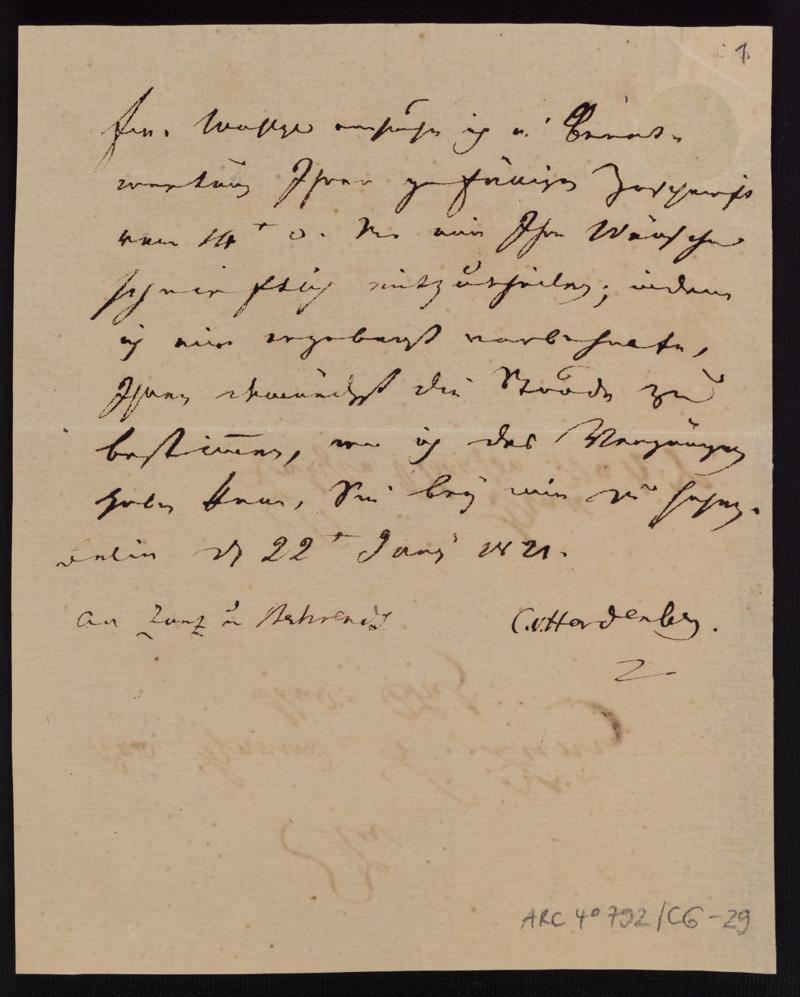 1
Ew. Wohlgeb ersuche ich in Beant-
wortung Ihrer gefälligen Zuschrift
vom 14t d. M. mir Ihre Wünsche
schriftlich mitzutheilen; indem
ich mir ergebenst vorbehalte,
Ihnen demnächst die Stunde zu
bestimen, wo ich das Vergnügen
haben kann, Sie bey mir zu sehen.
Berlin d 22t Juny 1821.
An Zunz u
C.v.Hardenberg.
ARC 4° 792/C6-29